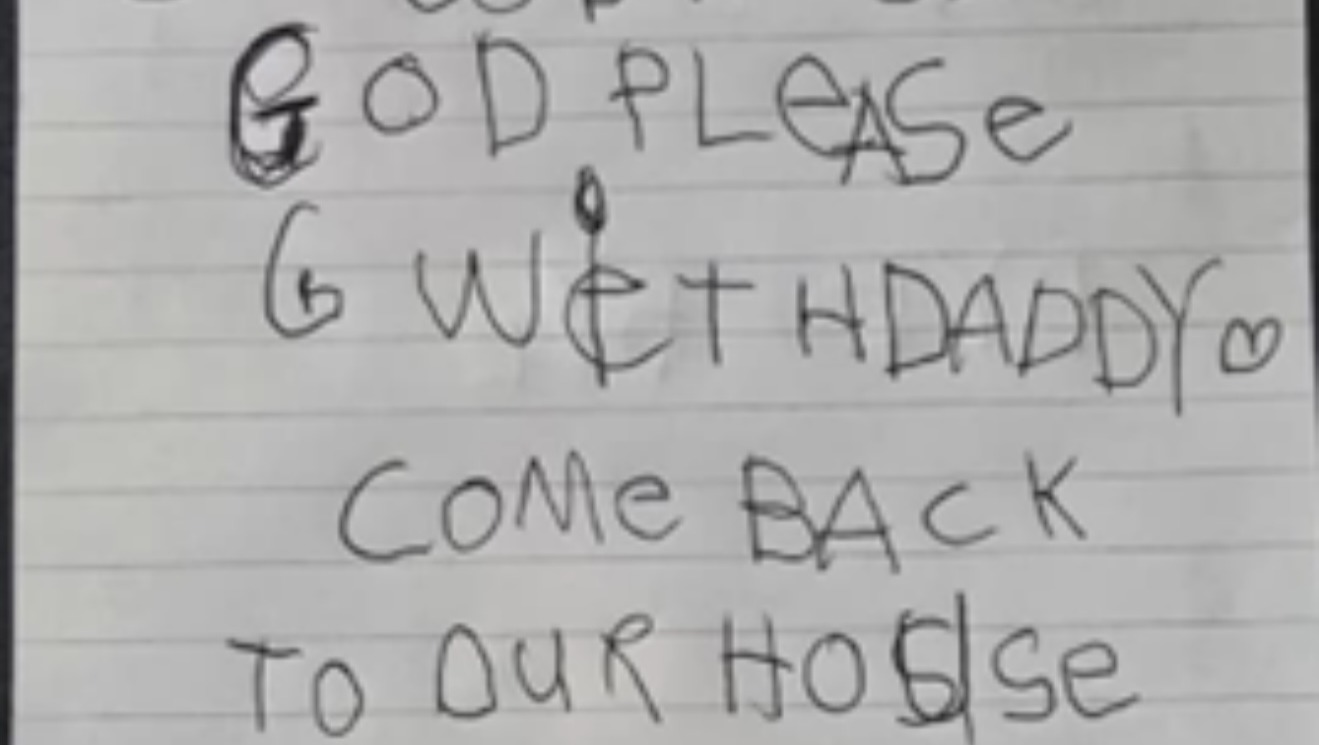 GOD PLeASe
G WITH DADDY
COMe BACK
TO OUR HOUSe